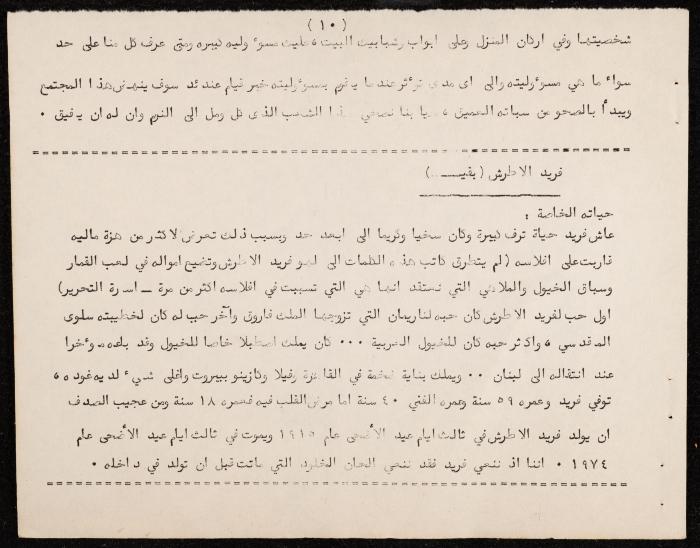 ( ١٠ )
شخصيتها وفي اركان المنزل وعلى ابواب وشبابيك البيت ، عليك مسوء وليه كبيره ومتى عرف كل منا على حد
سواء ما هي مسوء وليته والى اى مدى توءثر عند ما يقوم بمسوء وليته خير قيام عند ئذ سوف ينهض هذا المجتمع
ويبدأ بالصحو من سباته العميق ، هيا بنا نصحي هذا الشعب الذى كل ومل الى النوم وان له ان يفيق ٠
فريد الاطرش ( بقيـــة )
حياته الخاصة :
عاش فريد حياة ترف كبيرة وكان سخيا وكريما الى ابعد حد وبسبب ذلك تعرض لاكثر من هزة ماليه
قاربت على افلاسه ( لم يتطرق كاتب هذه الكلمات الى لهو فريد الاطرش وتضيع امواله في لعب القمار
وسباق الخيول والملاهي التي نعتقد انها هي التي تسببت في افلاسه اكثر من مرة ــ اسرة التحرير)
اول حب لفريد الاطرش كان حبه لناريمان التي تزوجها الملك فاروق وآخر حب له كان لخطيبته سلوى
المقدسي ، واكثر حبه كان للخيول العربية ٠٠٠ كان يملك اصطبلا خاصا للخيول وقد باعه موءخرا
عند انتقاله الى لبنان ٠٠ ويملك بناية ضخمة في القاهرة وفيلا وكازينو ببيروت واغلى شيء لديه عوده ،
توفي فريد وعمره ٥٩ سنة وعمره الفني ٤٠ سنة اما مرض القلب فيه فعمره ١٨ سنة ومن عجيب الصدف
ان يولد فريد الاطرش في ثالث ايام عيد الأضحى عام ١٩١٥ ويموت في ثالث ايام عيد الأضحى عام
١٩٧٤ ٠ اننا اذ ننعي فريد فقد ننعي الحان الخلود التي ماتت قبل ان تولد في داخله ٠